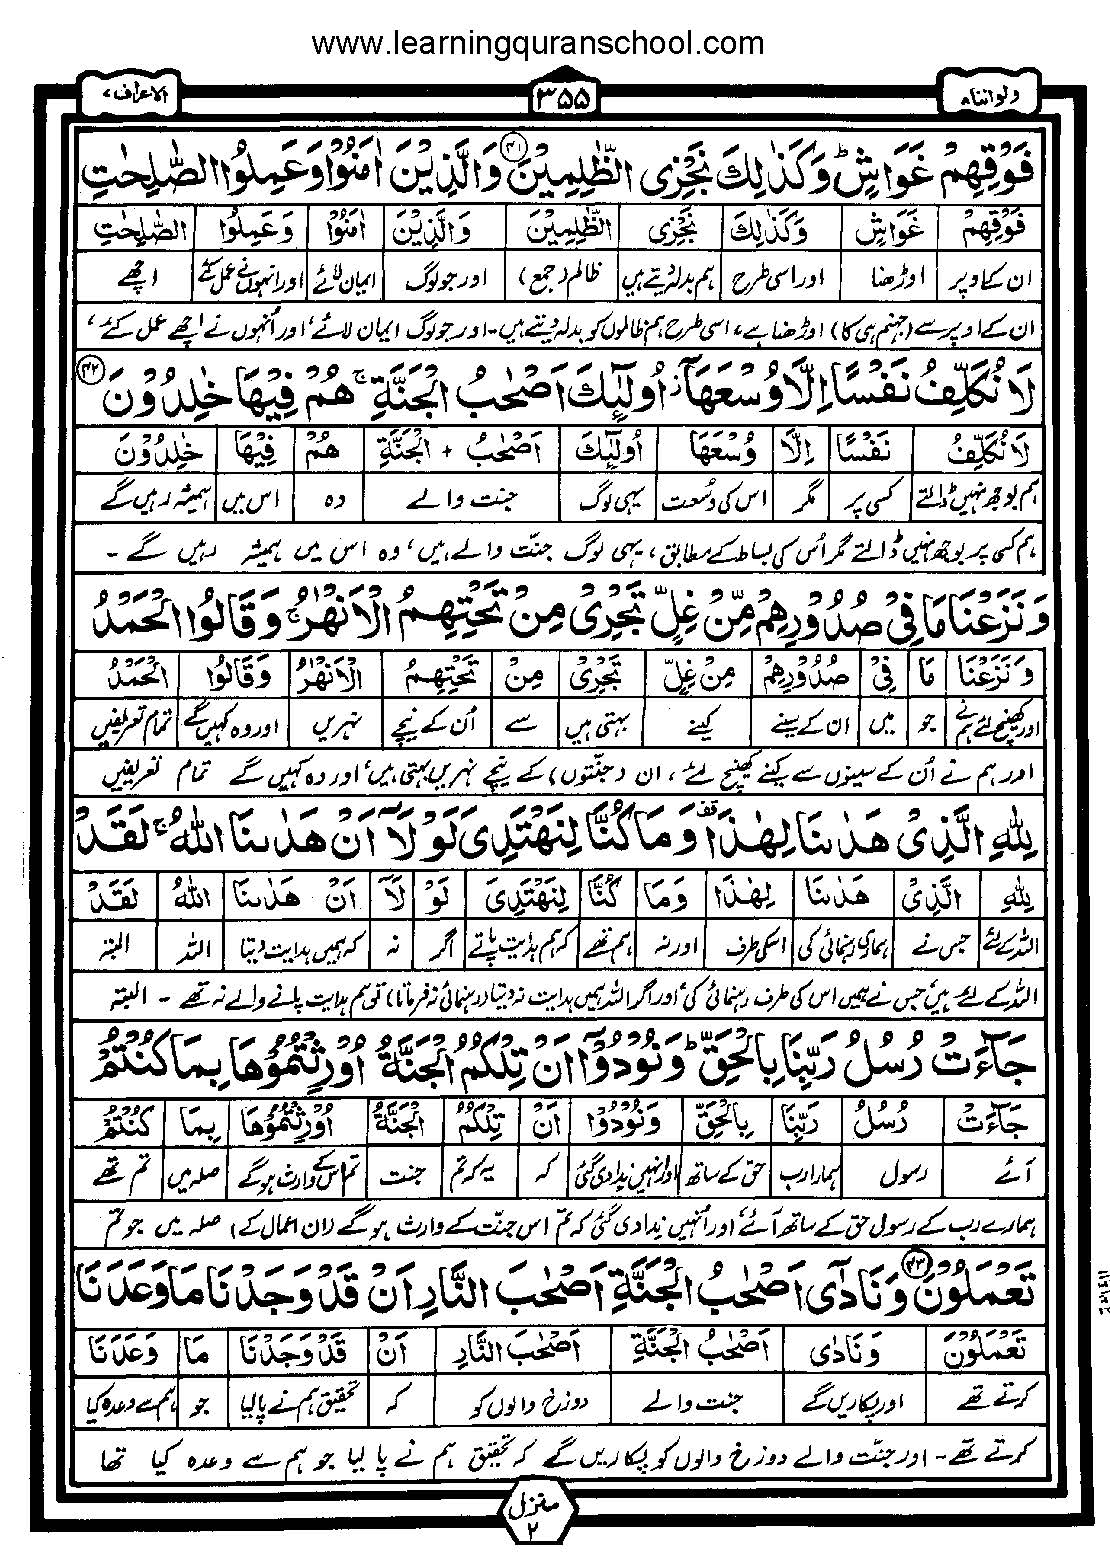 www.learningquranschool.com
ولواننا ۸ ۳۵۵ الاعراف ۷
فَوْقِهِمْ غَوَاشٍ ؕ وَكَذٰلِكَ نَجْزِی الظّٰلِمِیْنَ ۴۱ وَالَّذِیْنَ اٰمَنُوْا وَعَمِلُوا الصّٰلِحٰتِ
فَوْقِهِمْ غَوَاشٍ وَكَذٰلِكَ نَجْزِی الظّٰلِمِیْنَ وَالَّذِیْنَ اٰمَنُوْا وَعَمِلُوا الصّٰلِحٰتِ
ان کے اوپر اوڑھنا اور اسی طرح ہم بدلہ دیتے ہیں ظالم (جمع) اور جو لوگ ایمان لائے اور انہوں نے عمل کئے اچھے
ان کے اوپر سے (جہنم ہی کا) اوڑھنا ہے، اسی طرح ہم ظالموں کو بدلہ دیتے ہیں۔ اور جو لوگ ایمان لائے، اور اُنہوں نے اچھے عمل کئے،
لَا نُكَلِّفُ نَفْسًا اِلَّا وُسْعَهَاۤ ؗ اُولٰٓىِٕكَ اَصْحٰبُ الْجَنَّةِ ۚ هُمْ فِیْهَا خٰلِدُوْنَ ۴۲
لَا نُكَلِّفُ نَفْسًا اِلَّا وُسْعَهَا اُولٰٓىِٕكَ اَصْحٰبُ + الْجَنَّةِ هُمْ فِیْهَا خٰلِدُوْنَ
ہم بوجھ نہیں ڈالتے کسی پر مگر اس کی وسعت یہی لوگ جنت والے وہ اس میں ہمیشہ رہیں گے
ہم کسی پر بوجھ نہیں ڈالتے مگر اُس کی بساط کے مطابق، یہی لوگ جنّت والے ہیں، وہ اس میں ہمیشہ رہیں گے ۔
وَنَزَعْنَا مَا فِیْ صُدُوْرِهِمْ مِّنْ غِلٍّ تَجْرِیْ مِنْ تَحْتِهِمُ الْاَنْهٰرُ ۚ وَقَالُوا الْحَمْدُ
وَنَزَعْنَا مَا فِیْ صُدُوْرِهِمْ مِنْ غِلٍّ تَجْرِیْ مِنْ تَحْتِهِمُ الْاَنْهٰرُ وَقَالُوا الْحَمْدُ
اور کھینچ لئے ہم نے جو میں ان کے سینے کینے بہتی ہیں سے اُن کے نیچے نہریں اور وہ کہیں گے تمام تعریفیں
اور ہم نے اُن کے سینوں سے کینے کھینچ لئے، ان (جنّتوں) کے نیچے نہریں بہتی ہیں، اور وہ کہیں گے تمام تعریفیں
لِلّٰهِ الَّذِیْ هَدٰىنَا لِهٰذَا ۫ وَمَا كُنَّا لِنَهْتَدِیَ لَوْ لَاۤ اَنْ هَدٰىنَا اللّٰهُ ۚ لَقَدْ
لِلّٰهِ الَّذِیْ هَدٰىنَا لِهٰذَا وَمَا كُنَّا لِنَهْتَدِیَ لَوْ لَاۤ اَنْ هَدٰىنَا اللّٰهُ لَقَدْ
اللہ کے لئے جس نے ہماری رہنمائی کی اسکی طرف اور نہ ہم تھے کہ ہم ہدایت پاتے اگر نہ کہ ہمیں ہدایت دیتا اللہ البتہ
اللہ کے لئے ہیں، جس نے ہمیں اس کی طرف رہنمائی کی، اور اگر اللہ ہمیں ہدایت نہ دیتا (رہنمائی نہ فرماتا) تو ہم ہدایت پانے والے نہ تھے ۔ البتہ
جَآءَتْ رُسُلُ رَبِّنَا بِالْحَقِّ ؕ وَنُوْدُوْۤا اَنْ تِلْكُمُ الْجَنَّةُ اُوْرِثْتُمُوْهَا بِمَا كُنْتُمْ
جَآءَتْ رُسُلُ رَبِّنَا بِالْحَقِّ وَنُوْدُوْۤا اَنْ تِلْكُمُ الْجَنَّةُ اُوْرِثْتُمُوْهَا بِمَا كُنْتُمْ
آئے رسول ہمارا رب حق کے ساتھ اور انہیں ندا دی گئی کہ یہ کہ تم جنت تم اس کے وارث ہوگے صلہ میں تم تھے
ہمارے رب کے رسول حق کے ساتھ آئے، اور اُنہیں ندا دی گئی کہ تم اس جنّت کے وارث ہوگے (ان اعمال کے) صلہ میں جو تم
تَعْمَلُوْنَ ۴۳ وَنَادٰۤی اَصْحٰبُ الْجَنَّةِ اَصْحٰبَ النَّارِ اَنْ قَدْ وَجَدْنَا مَا وَعَدَنَا
تَعْمَلُوْنَ وَنَادٰی اَصْحٰبُ الْجَنَّةِ اَصْحٰبَ النَّارِ اَنْ قَدْ وَجَدْنَا مَا وَعَدَنَا
کرتے تھے اور پکاریں گے جنت والے دوزخ والوں کو کہ تحقیق ہم نے پالیا جو ہم سے وعدہ کیا
کرتے تھے۔ اور جنّت والے دوزخ والوں کو پکاریں گے کہ تحقیق ہم نے پا لیا جو ہم سے وعدہ کیا تھا
منزل ۲